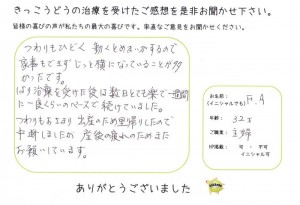 きっこうどうの治療を受けたご感想を是非お聞かせ下さい。
皆様の喜びの声が私たちの最大の喜びです。率直なご意見をお聞かせください。
つわりもひどく 動くとめまいがするので
家事もできずじっと横になっていることが多
かったです。
はり治療を受けた後は数日とても楽で一週間
に一度くらいのペースで続けていました。
つわりもおさまり 出産のため里帰りしたので
中断しましたが 産後の疲れのためまた
お願いしています。
お名前:
(イニシャルでも)
F.A
年齢: 32才
ご職業: 主婦
HP掲載: 可 ・ 不可
イニシャル可
ありがとうございました